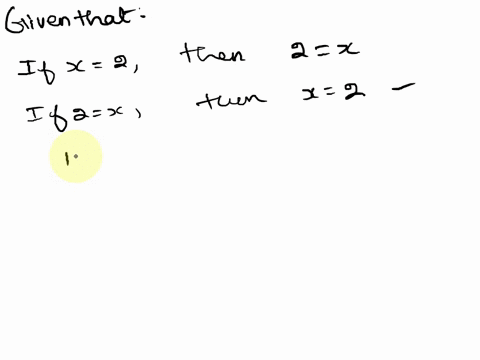 Given that:
If x = 2, then 2 = x
If 2 = x, then x = 2 —
1.